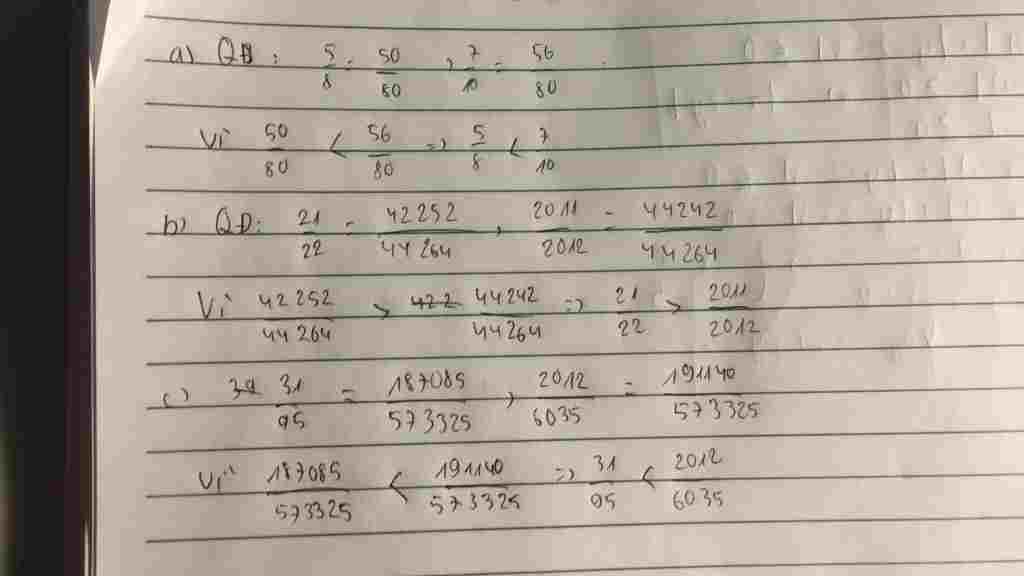 a) QĐ: 5/8 = 50/80, 7/10 = 56/80
Vì 50/80 < 56/80 => 5/8 < 7/10
b) QĐ: 21/22 = 42252/44264, 2011/2012 = 44242/44264
Vì 42252/44264 > 44242/44264 => 21/22 > 2011/2012
c) 31/95 = 187085/573325, 2012/6035 = 191140/573325
Vì 187085/573325 < 191140/573325 => 31/95 < 2012/6035